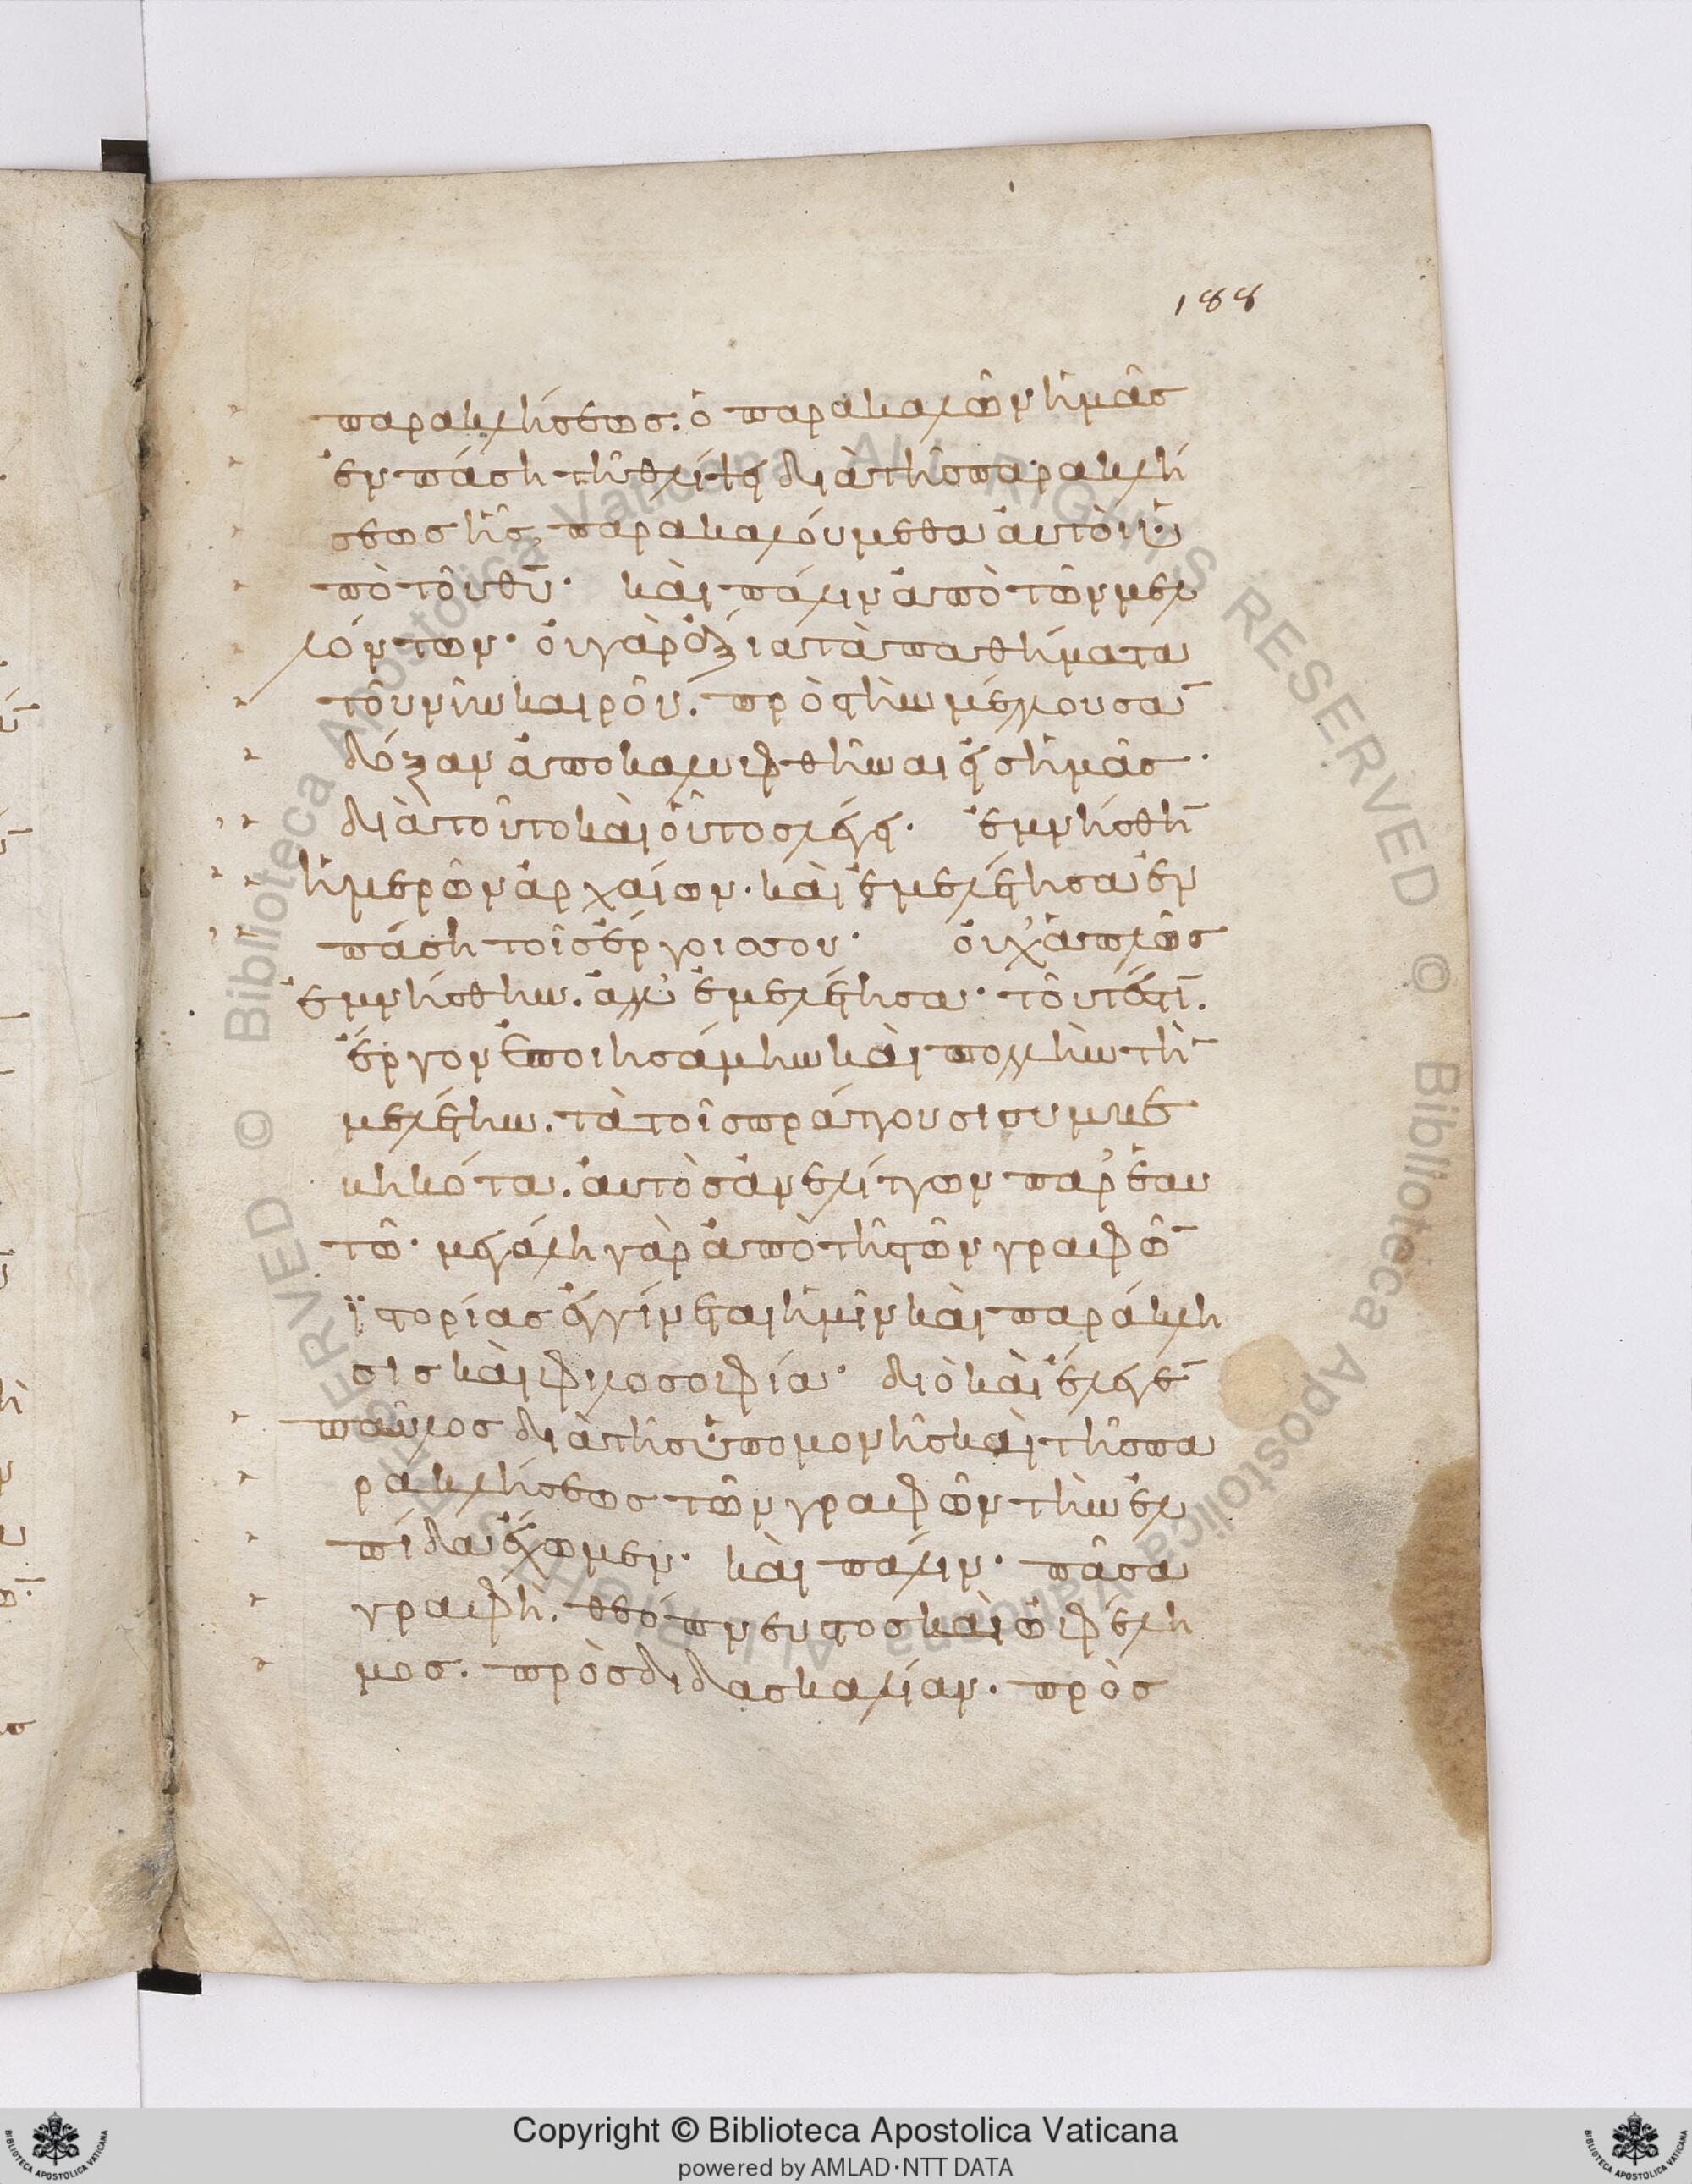 188
παρακλήσεως. ὁ παρακαλῶν ἡμᾶς
ἐν πάση τῆ θλίψει διὰ τῆς παρακλή
σεως ἧς παρακαλούμεθα αὐτοὶ ὑ
πὸ τοῦ θυ̅· καὶ πάλιν ἀπὸ τῶν μελ
λόντων· οὐ γὰρ ἄξια τὰ παθήματα
τοῦ νῦν καιροῦ. πρὸς τὴν μέλλουσα̅
δόξαν ἀποκαλυφθῆναι εἰς ἡμᾶς·
διὰ τοῦτο καὶ οὗτος λέγει· ἐμνήσθη̅
ἡμερῶν ἀρχαίων· καὶ ἐμελέτησα ἐν
πάση τοῖς ἔργοις σου· οὐχ ἁπλῶς
ἐμνήσθην. ἀλλ' ἐμελέτησα· τουτέστι̅.
ἔργον ἐποιησάμην καὶ πολλὴν τὴ̅
μελέτην. τὰ τοῖς πράττουσι συμβε
βηκότα. αὐτὸς ἀνελίττων παρ' ἑαυ
τῶ· μεγάλη γὰρ ἀπὸ τῆς τῶν γραφῶ̅
ϊστορίας ἐγγίνεται ἡμῖν καὶ παράκλη
σις καὶ φιλοσοφία· διὸ καὶ ἔλεγε̅
παῦλος διὰ τῆς ὑπομονῆς καὶ τῆς πα
ρακλήσεως τῶν γραφῶν τὴν ἐλ
πίδα ἔχωμεν· καὶ πάλιν· πᾶσα
γραφὴ. θεόπνευστος καὶ ὠφέλη
μος. πρὸς διδασκαλίαν· πρὸς
Copyright © Biblioteca Apostolica Vaticana
powered by AMLAD·NTT DATA